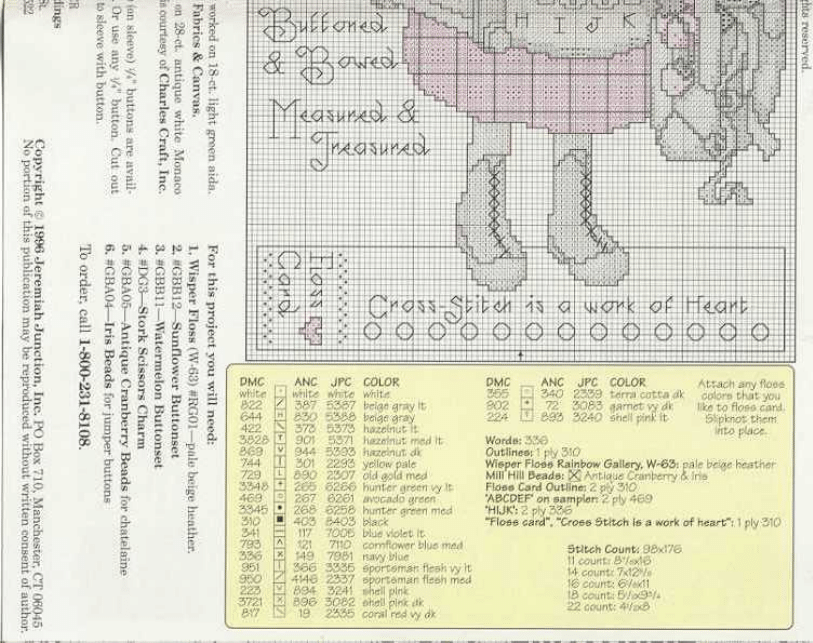 hts reserved.
H I J K
Buttoned
& Bowed
Measured &
Treasured
Floss
Card
Cross-Stitch is a work of Heart
worked on 18-ct. light green aida.
Fabrics & Canvas.
on 28-ct. antique white Monaco
s courtesy of Charles Craft, Inc.
(on sleeve) ¼" buttons are avail-
Or use any ¼" button. Cut out
to sleeve with button.
dings
For this project you will need:
1. Wisper Floss (W-63) #RG01—pale beige heather.
2. #GBB12—Sunflower Buttonset
3. #GBB11—Watermelon Buttonset
4. #DG3—Stork Scissors Charm
5. #GBA05—Antique Cranberry Beads for chatelaine
6. #GBA04—Iris Beads for jumper buttons
To order, call 1-800-231-8108.
Copyright © 1996 Jeremiah Junction, Inc. PO Box 710, Manchester, CT 06045
No portion of this publication may be reproduced without written consent of author.
DMC ANC JPC COLOR
white white white white
822 387 5387 beige gray lt
644 830 5388 beige gray
422 373 5373 hazelnut lt
3828 901 5371 hazelnut med lt
869 944 5393 hazelnut dk
744 301 2293 yellow pale
729 890 2307 old gold med
3348 265 6266 hunter green vy lt
469 267 6261 avocado green
3345 268 6258 hunter green med
310 403 8403 black
341 117 7005 blue violet lt
793 121 7110 cornflower blue med
336 149 7981 navy blue
951 366 3335 sportsman flesh vy lt
950 4146 2337 sportsman flesh med
223 894 3241 shell pink
3721 896 3082 shell pink dk
817 19 2335 coral red vy dk
DMC ANC JPC COLOR
355 340 2339 terra cotta dk
902 72 3083 garnet vy dk
224 893 3240 shell pink lt
Attach any floss
colors that you
like to floss card.
Slipknot them
into place.
Words: 336
Outlines: 1 ply 310
Wisper Floss Rainbow Gallery, W-63: pale beige heather
Mill Hill Beads: Antique Cranberry & Iris
Floss Card Outline: 2 ply 310
"ABCDEF" on sampler: 2 ply 469
"HIJK": 2 ply 336
"Floss card", "Cross Stitch is a work of heart": 1 ply 310
Stitch Count: 98x176
11 count: 8⅞x16
14 count: 7x12⅝
16 count: 6⅛x11
18 count: 5½x9¾
22 count: 4½x8